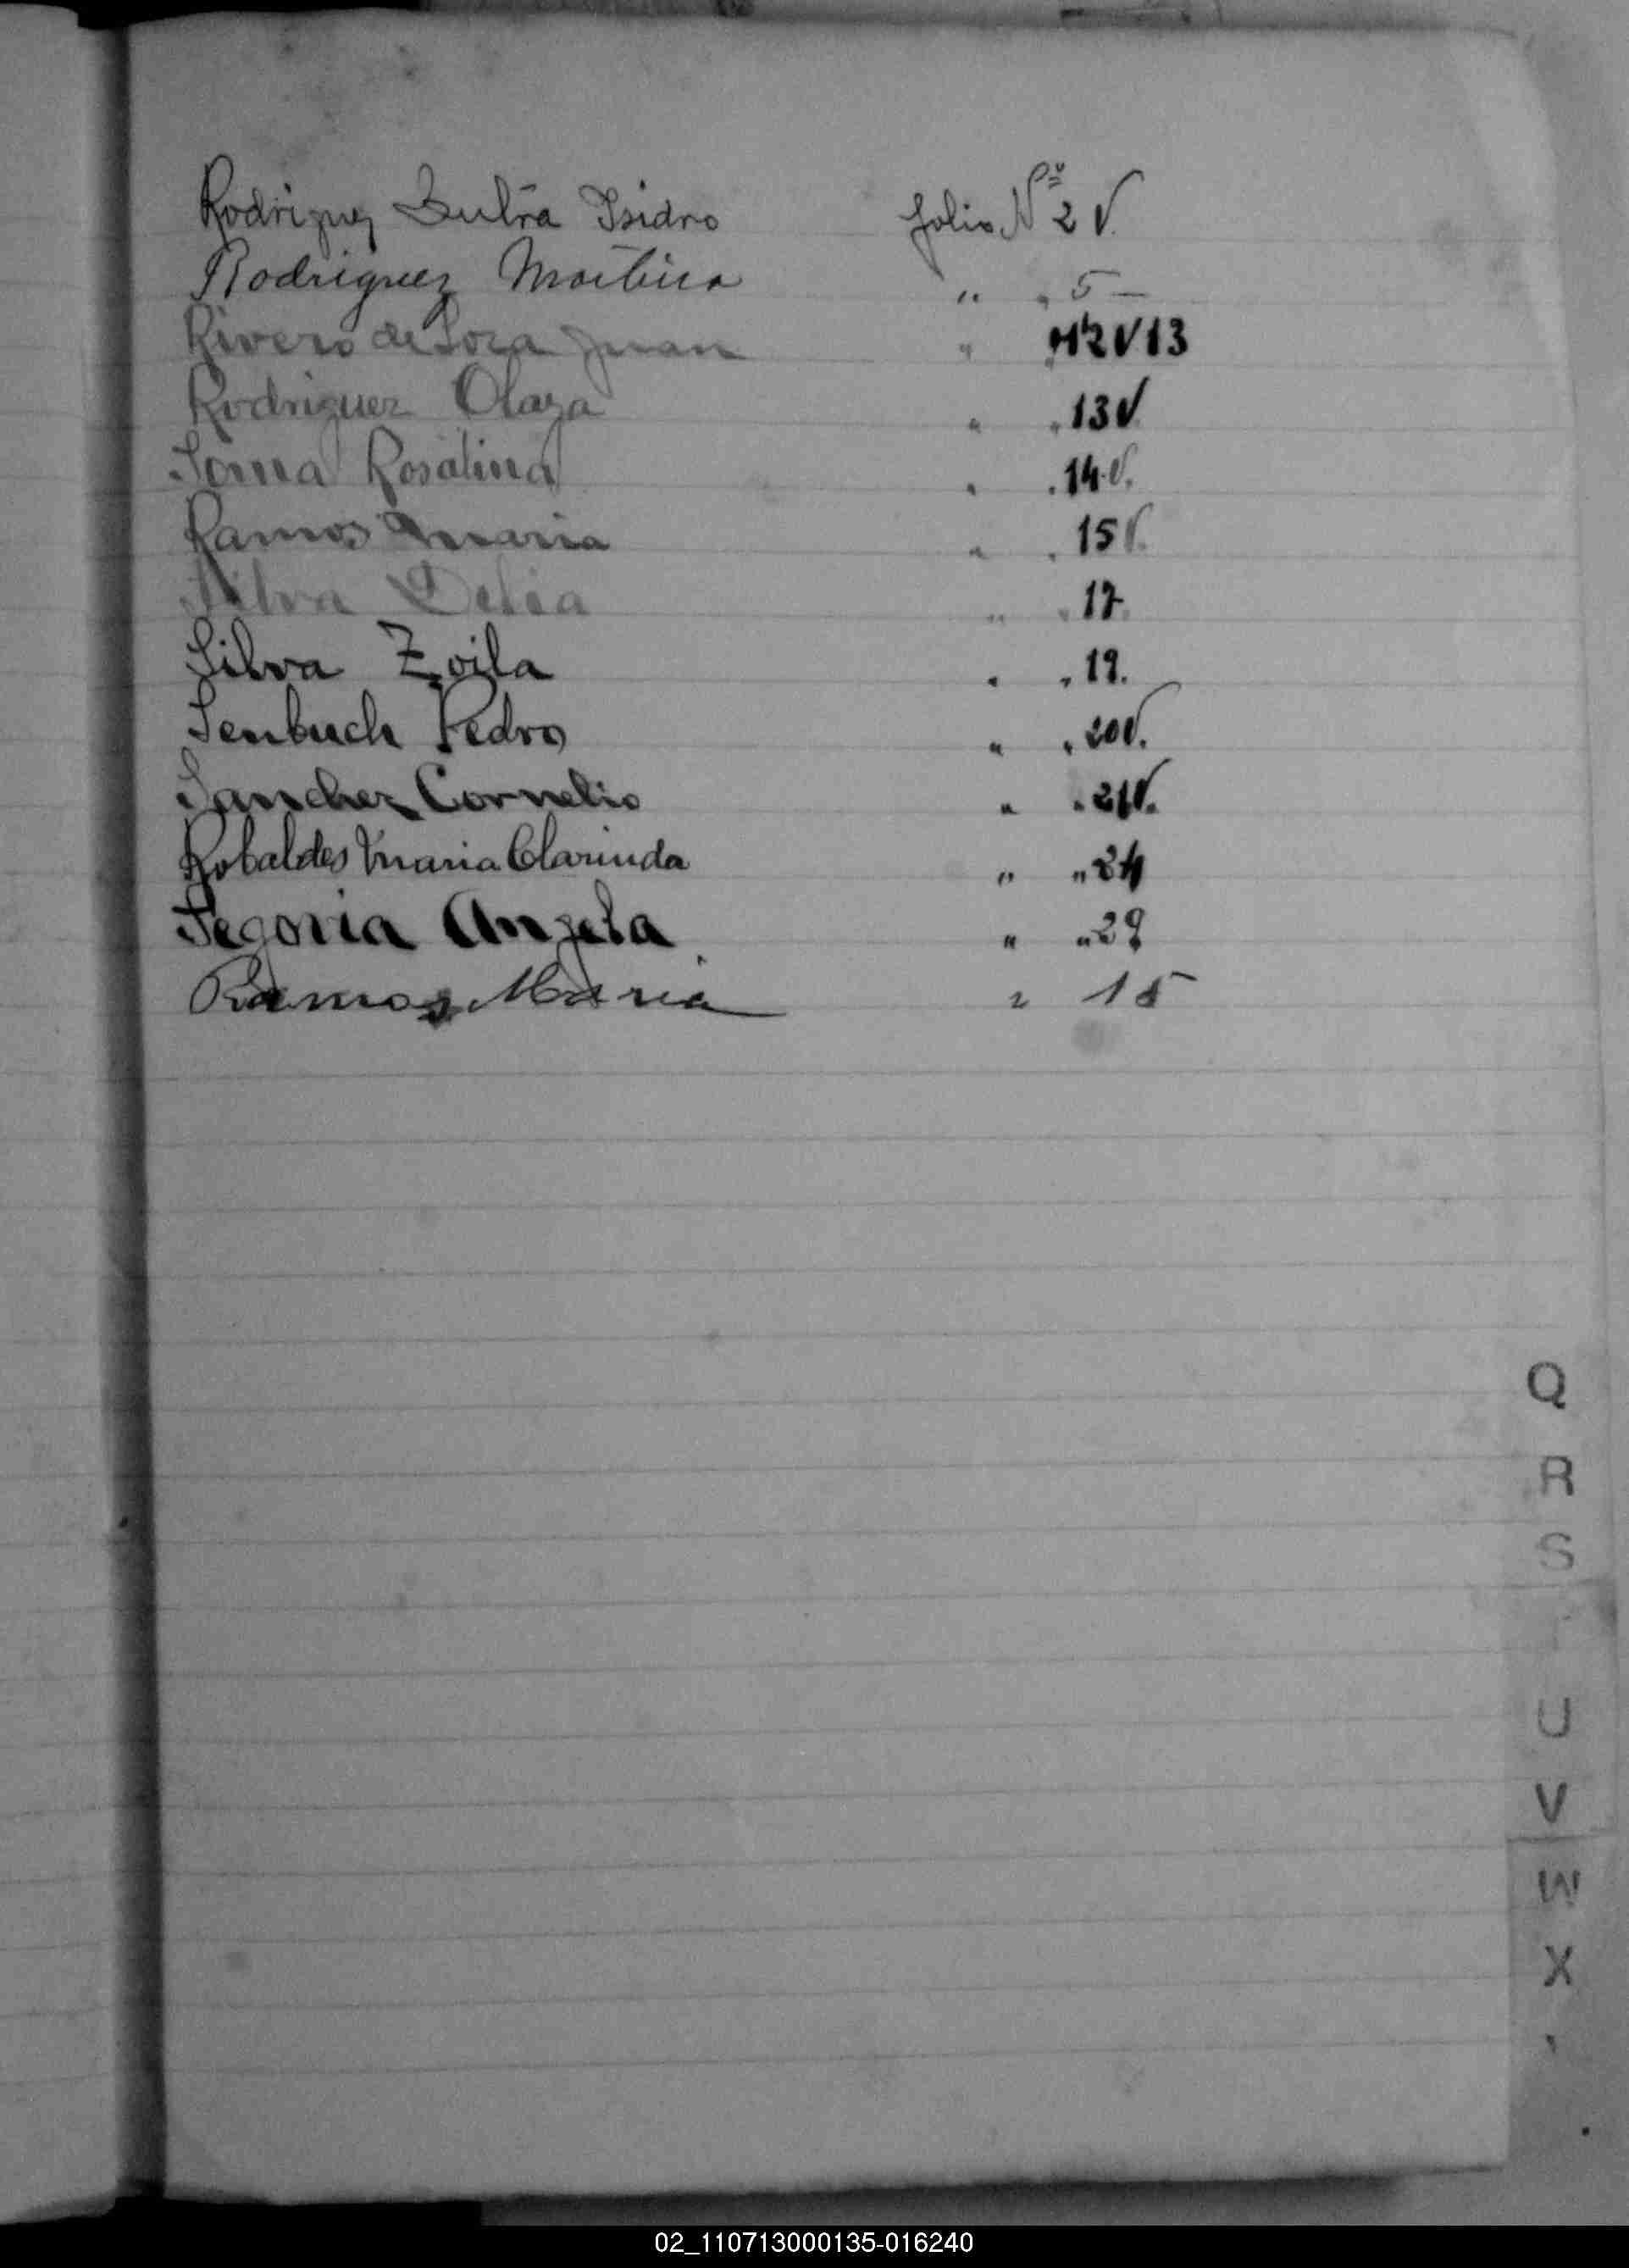 Rodriguez Isidro folio Nº 2 V.
Rodriguez " " 5 —
Rivero de Soza Juan " 12 V 13
Rodriguez Olaza " " 13 V.
Rosalina " " 14 V.
Ramos Maria " " 15 V.
Silva Delia " " 17.
Silva Zoila " " 19.
Senbuch Pedro " " 20 V.
Sanchez Cornelio " " 21 V.
Robaldes Maria Clarinda " " 24
Segovia Angela " " 29
Ramos Maria " 15
Q
R
S
U
V
W
X
02_110713000135-016240